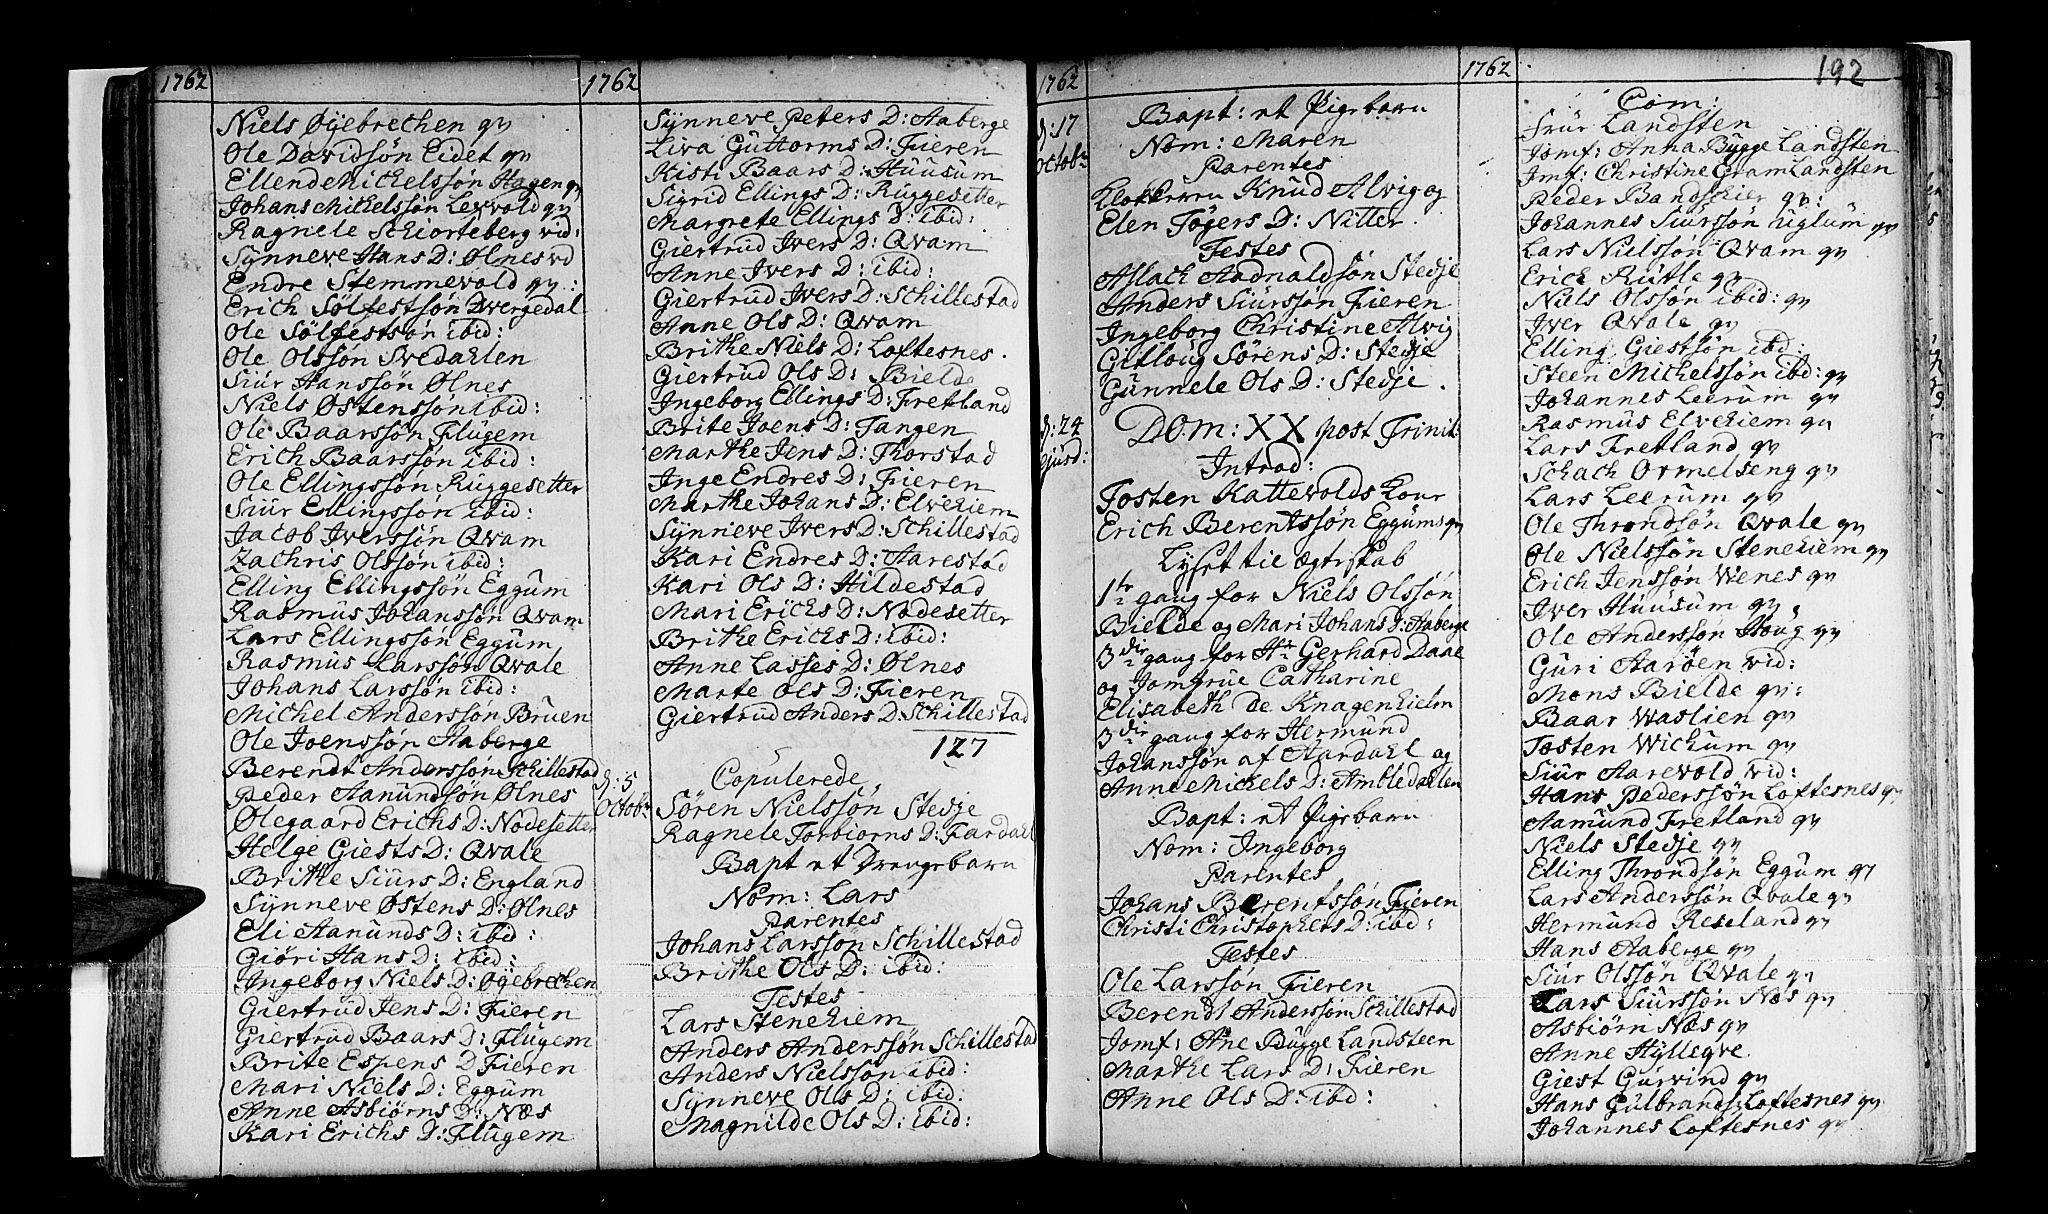 1762
Niels Øyebrechen qv
Ole Davidsøn Eidet qv
Ellend Mickelssøn Hagen qv
Johans Mickelssøn Leqvold qv
Ragnele Schiorteberg vid:
Synneve Hans D: Ølnes vd
Endre Stemmevold qv:
Erich Sølfestsøn Dvergedal
Ole Sølfestsøn ibid:
Ole Olssøn Svedahlen
Siur Hanssøn Ølnes
Niels Østenssøn ibid:
Ole Baarssøn Flugem
Erich Baarssøn ibid:
Ole Ellingssøn Ruggesetter
Siur Ellingssøn ibid:
Jacob Iverssøn Qvam
Zachris Olssøn ibid:
Elling Ellingssøn Eggum
Rasmus Johanssøn Qvam
Lars Ellingssøn Eggum
Rasmus Larssøn Qvale
Johans Larssøn ibid:
Michel Anderssøn Bruen
Ole Joenssøn Haberge
Berendt Anderssøn Schillestad
Peder Aamundsøn Ølnes
Olegaard Erichs D: Nodesetter
Helge Giests D: Qvale
Brithe Siurs D: England
Synneve Østens D: Ølnes
Eli Aamunds D: ibid:
Giøri Hans D: ibid:
Ingeborg Niels D: Øyebrechen
Giertrud Jens D: Fieren
Giertrud Baars D: Flugem
Brite Espens D Fieren
Mari Niels D: Eggum
Anne Asbiørns D: Næs
Kari Erichs D: Flugem
1762
Synneve Peters D: Aaberge
Liva Guttorms D: Fieren
Kisti Baars D: Huusum
Sigrid Ellings D: Ruggesetter
Margrete Ellings D: ibid:
Giertrud Ivers D: Qvam
Anne Ivers D: ibid:
Giertrud Ivers D: Schillestad
Anne Ols D: Qvam
Brithe Niels D: Loftesnes.
Giertrud Ols D: Bielde
Ingeborg Ellings D: Fretland
Brite Joens D: Tangen
Marthe Jens D: Thorstad
Inge Endres D: Fieren
Marthe Johans D: Elvehiem
Synneve Ivers D: Schillestad
Kari Endres D: Harestad
Kari Ols D: Hildestad
Mari Erichs D: Nodesetter
Brithe Erichs D: ibid:
Anne Lasses D: Ølnes
Marte Ols D: Fieren
Giertrud Anders D: Schillestad
127
Copulerede
d: 5
Octobr
Søren Nielssøn Stedje
Ragnele Torbiørns D: Fardahl
Bapt et Drengebarn
Nom: Lars
Parentes
Johans Larssøn Schillestad
Brithe Ols D: ibid:
Testes
Lars Stenehiem
Anders Anderssøn Schillestad
Anders Nielssøn ibid:
Synneve Ols D: ibid:
Magnilde Ols D: ibid:
1762
d: 17
Octobr
Bapt: et Pigebarn
Nom: Maren
Parentes
Klokkeren Knud Alvig og
Elen Tøgers D: Nitter
Testes
Aslach Aadnaldsøn Stedje
Anders Siurssøn Fieren
Ingeborg Christine Alvig
Gitloug Sørens D: Stedje
Gunnele Ols D: Stedje.
d: 24
ejusd:
DOm: XX post Trinit:
Introd:
Tosten Kattevolds Kone
Erich Berentssøn Eggums qv
Lyset til Ægteskab
1te gang for Niels Olssøn
Bielde og Mari Johans D: Aaberge
3die gang for Hr Gerhard Daae
og Jomfrue Catharine
Elisabeth de Knagenhielm
3die gang for Hermund
Johanssøn af Aardahl og
Anne Mickels D: Ambledahlen
Bapt: et Pigebarn
Nom: Ingeborg
Parentes
Johans Berentssøn Fieren
Christi Christophers D: ibd:
Testes
Ole Larssøn Fieren
Berendt Anderssøn Schillestad
Jomf: Ane Bugge Landsteen
Marthe Lars D: Fieren
Anne Ols D: ibd:
1762
192
Com:
Frur Landsten
Jomf: Anna Bugge Landsten
Jmf: Christine Gram Landsten
Peder Bandshier qv:
Johannes Siurssøn Uglum qv
Lars Nielssøn Qvam qv
Erich Rutle qv
Niels Olssøn ibid: qv
Iver Qvale qv
Elling Giestsøn ibd:
Steen Mickelssøn ibd: qv
Johannes Leerum qv
Rasmus Elvehiem qv
Lars Fretland qv
Schach Ormelseng qv
Lars Leerum qv
Ole Throndsøn Qvale qv
Ole Nielssøn Stenehiem qv
Erich Jenssøn Wenes qv
Iver Huusum qv
Ole Anderssøn Houg qv
Guri Aarøen vid:
Mons Bielde qv:
Baar Waslien qv
Tosten Wichum qv
Siur Aarevold vid:
Hans Pederssøn Loftesnes qv
Aamund Fretland qv
Niels Stedje qv
Elling Throndsøn Eggum qv
Lars Anderssøn Qvale qv
Hermund Reseland qv
Hans Aaberge qv
Siur Olssøn Qvale qv
Lars Siurssøn Næs qv
Asbiørn Næs qv
Anne Hylleqve
Giest Gurvind qv
Hans Gulbrands: Loftesnes qv
Johannes Loftesnes qv